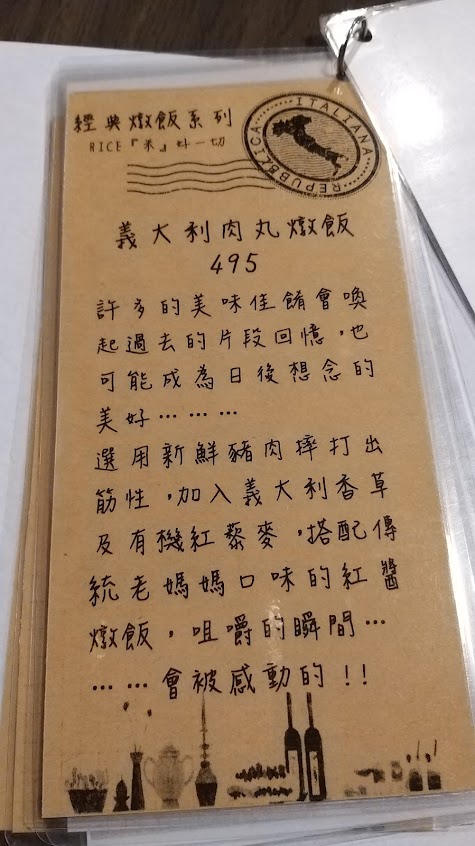 經典燉飯系列
RICE『米』好一切
REPUBBLICA ITALIANA
義大利肉丸燉飯
495
許多的美味佳餚會喚
起過去的片段回憶，也
可能成為日後想念的
美好………
選用新鮮豬肉摔打出
筋性，加入義大利香草
及有機紅藜麥，搭配傳
統老媽媽口味的紅醬
燉飯，咀嚼的瞬間…
……會被感動的!!